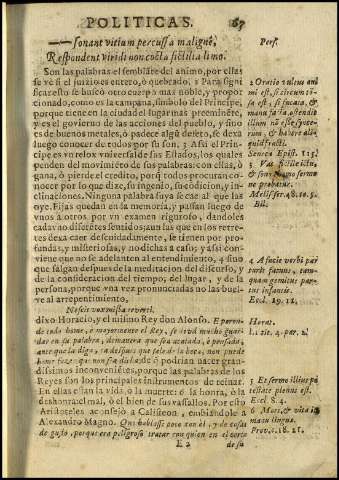 POLITICAS. 67
——sonant vitium percussa maligné,
Respondent viridi non cocta fictilia limo.
Son las palabras el semblãte del animo, por ellas
se vè si el juizio es entero, ò quebrado, 2 Para signi
ficar esto se buscò otro cuerpo mas noble, y propor
cionado, como es la campana, simbolo del Principe,
porque tiene en la ciudad el lugar mas preeminẽte,
y es el govierno de las acciones del pueblo, y sino es
de buenos metales, ò padece algũ defeto, se dexa
luego conocer de todos por su son, 3 Assi el Princi-
pe es vn relox vniversal de sus Estados, los quales
penden del movimiẽto de sus palabras: con ellas, ò
gana, ò pierde el credito, porq̃ todos procuran co-
nocer por lo que dize, su ingenio, su cõdicion, y in-
clinaciones. Ninguna palabra suya se cae al que las
oye. Fijas quedan en la memoria, y passan luego de
vnos a otros, por vn examen riguroso, dandoles
cada vno difetẽtes sentidos; aun las que en los retre-
tes dexa caer descuidadamente, se tienen por pro-
fundas, y misteriosas, y no dichas a caso; y assi con-
viene que no se adelanten al entendimiento, 4 sino
que salgan despues de la meditacion del discurso, y
de la consideracion del tiempo, del lugar, y de la
persona, porque vna vez pronunciadas no las buel-
ve al arrepentimiento.
Nescit vox missa reverti.
dixo Horacio, y el mismo Rey don Alonso. E poren-
de todo home, è mayormente el Rey, se deve mucho guar-
dar en su palabra, demanera que sea acatada, è pensada,
ante que la diga, ca despues que sale de la boca, non puede
home fazer, que non sea dicha: de ò podrian nacer gran-
dissimos inconvenientes, porque las palabras de los
Reyes son los principales instrumentos de reinar.
En ellas estàn la vida, ò la muerte: 6 la honra, ò la
deshonra: el mal, ò el bien de sus vassallos. Por esto
Aristoteles aconsejò a Calistenes, embiandole a
Alexandro Magno. Que hablasse poco con él, y de cosas
de gusto, porque era peligroso tratar con quien en el corte
E 2 de su
Pers.
2 Oratio vultus ani
mi est, si circum tõ
sa est, si fucata, &
manu facta, ostendit
illum non esse, synce-
rum, & habere ali-
quid fracti.
Seneca Epist. 115.
3 Vas fictile ictu,
& sono, homo sermo
ne probatur.
Meliss. ser.
4 A facie verbi par
turit fatuus, tam-
quam gemitus par-
tus infantis.
Eccl. 19. 11.
Horat.
L. tit. 4. par. 2.
5 Et sermo illius po
testate plenus est.
Eccl. 8. 4.
6 Mors, & vita in
manu linguæ.
Prov. c. 18. 21.